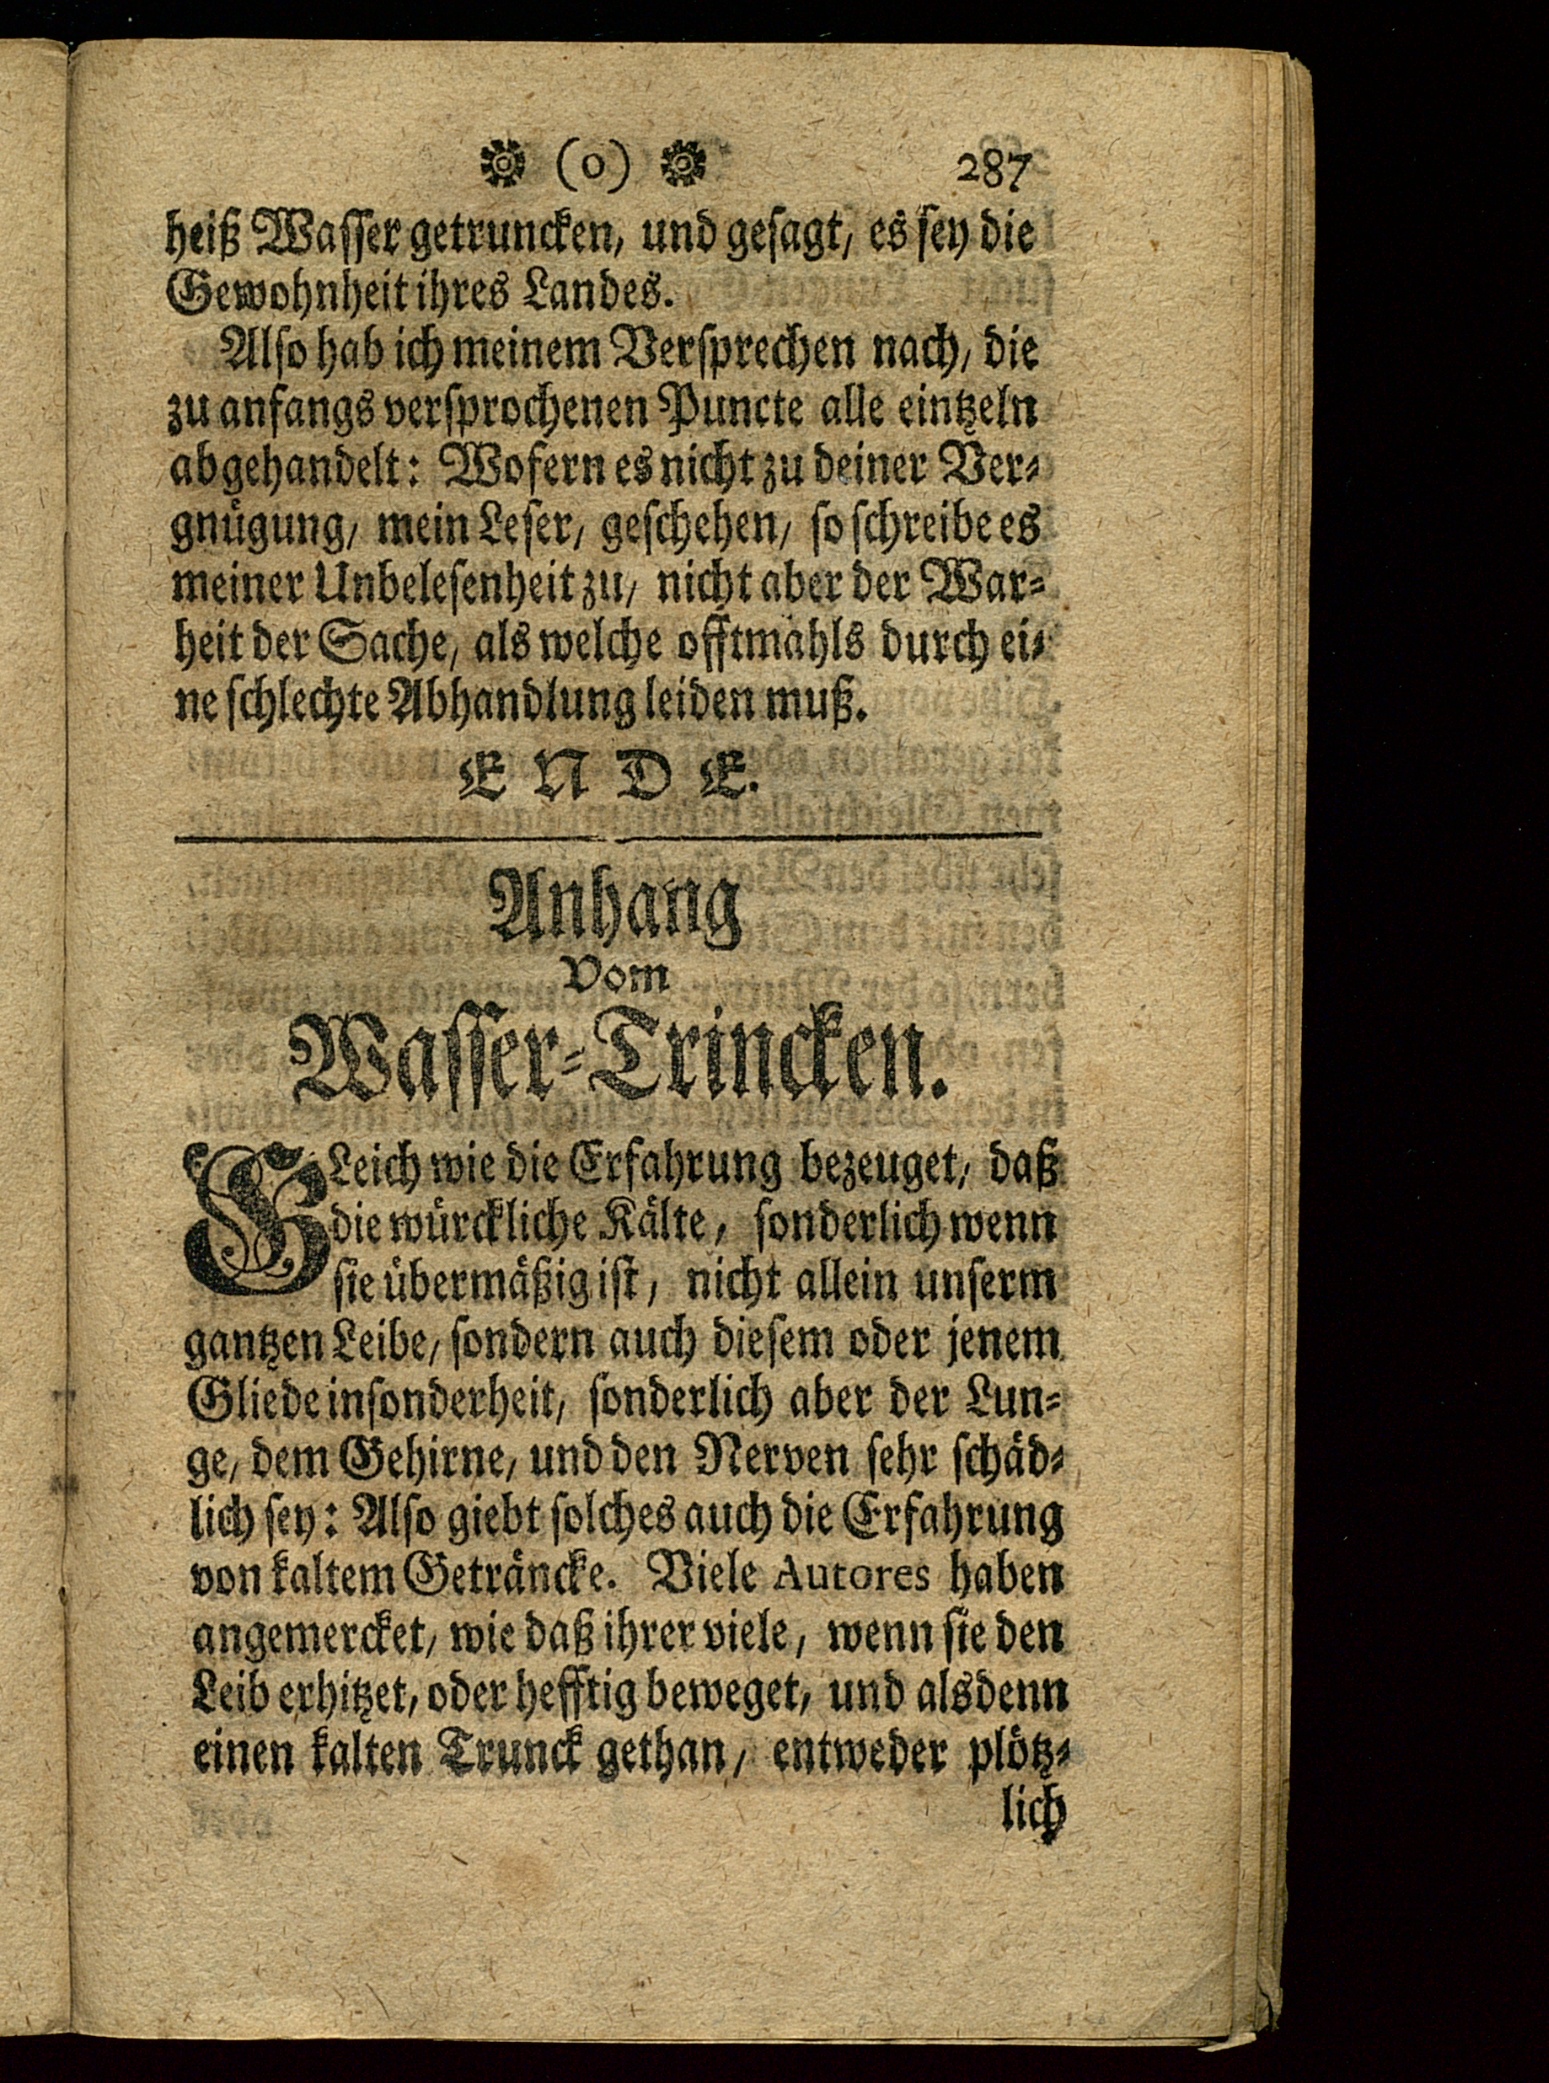 (0) 287
heiß Wasser getruncken, und gesagt, es sey die
Gewohnheit ihres Landes.
Also hab ich meinem Versprechen nach, die
zu anfangs versprochenen Puncte alle eintzeln
abgehandelt: Wofern es nicht zu deiner Ver-
gnügung, mein Leser, geschehen, so schreibe es
meiner Unbelesenheit zu, nicht aber der War-
heit der Sache, als welche offtmahls durch ei-
ne schlechte Abhandlung leiden muß.
ENDE.
Anhang
Vom
Wasser-Trincken.
GLeich wie die Erfahrung bezeuget, daß
die würckliche Kälte, sonderlich wenn
sie übermäßig ist, nicht allein unserm
gantzen Leibe, sondern auch diesem oder jenem
Gliede insonderheit, sonderlich aber der Lun-
ge, dem Gehirne, und den Nerven sehr schäd-
lich sey: Also giebt solches auch die Erfahrung
von kaltem Geträncke. Viele Autores haben
angemercket, wie daß ihrer viele, wenn sie den
Leib erhitzet, oder hefftig beweget, und alsdenn
einen kalten Trunck gethan, entweder plötz-
lich